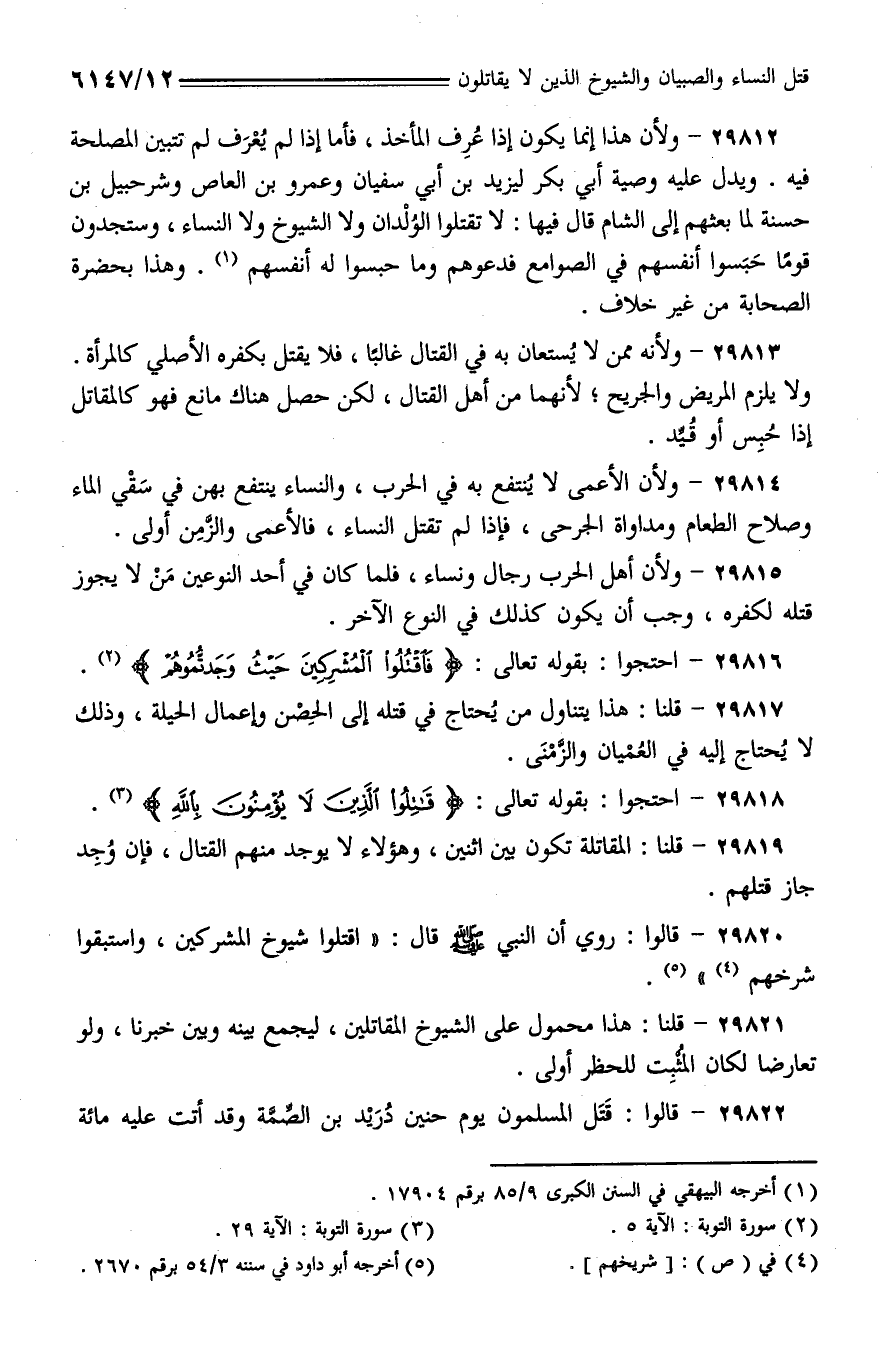 قتل النساء والصبيان والشيوخ الذين لا يقاتلون ٦١٤٧/١٢
٢٩٨١٢ – ولأن هذا إنما يكون إذا عُرِف المأخذ ، فأما إذا لم يُعْرَف لم تتبين المصلحة
فيه . ويدل عليه وصية أبي بكر ليزيد بن أبي سفيان وعمرو بن العاص وشرحبيل بن
حسنة لما بعثهم إلى الشام قال فيها : لا تقتلوا الوُلْدان ولا الشيوخ ولا النساء ، وستجدون
قومًا حَبَسوا أنفسهم في الصوامع فدعوهم وما حبسوا له أنفسهم (١) . وهذا بحضرة
الصحابة من غير خلاف .
٢٩٨١٣ – ولأنه ممن لا يُستعان به في القتال غالبًا ، فلا يقتل بكفره الأصلي كالمرأة .
ولا يلزم المريض والجريح ؛ لأنهما من أهل القتال ، لكن حصل هناك مانع فهو كالمقاتل
إذا حُبِس أو قُيِّد .
٢٩٨١٤ – ولأن الأعمى لا يُنتفع به في الحرب ، والنساء ينتفع بهن في سَقْي الماء
وصلاح الطعام ومداواة الجرحى ، فإذا لم تقتل النساء ، فالأعمى والزَّمِن أولى .
٢٩٨١٥ – ولأن أهل الحرب رجال ونساء ، فلما كان في أحد النوعين مَنْ لا يجوز
قتله لكفره ، وجب أن يكون كذلك في النوع الآخر .
٢٩٨١٦ – احتجوا : بقوله تعالى : ﴿ فَٱقْتُلُوا۟ ٱلْمُشْرِكِينَ حَيْثُ وَجَدتُّمُوهُمْ ﴾ (٢) .
٢٩٨١٧ – قلنا : هذا يتناول من يُحتاج في قتله إلى الحِصْن وإعمال الحيلة ، وذلك
لا يُحتاج إليه في العُمْيان والزَّمْنَى .
٢٩٨١٨ – احتجوا : بقوله تعالى : ﴿ قَٰتِلُوا۟ ٱلَّذِينَ لَا يُؤْمِنُونَ بِٱللَّهِ ﴾ (٣) .
٢٩٨١٩ – قلنا : المقاتلة تكون بين اثنين ، وهؤلاء لا يوجد منهم القتال ، فإن وُجِد
جاز قتلهم .
٢٩٨٢٠ – قالوا : روي أن النبي ﷺ قال : « اقتلوا شيوخ المشركين ، واستبقوا
شرخهم (٤) » (٥) .
٢٩٨٢١ – قلنا : هذا محمول على الشيوخ المقاتلين ، ليجمع بينه وبين خبرنا ، ولو
تعارضا لكان المُثْبِت للحظر أولى .
٢٩٨٢٢ – قالوا : قَتَل المسلمون يوم حنين دُرَيْد بن الصِّمَّة وقد أتت عليه مائة
(١) أخرجه البيهقي في السنن الكبرى ٨٥/٩ برقم ١٧٩٠٤ .
(٢) سورة التوبة : الآية ٥ . (٣) سورة التوبة : الآية ٢٩ .
(٤) في ( ص ) : [ شريخهم ] . (٥) أخرجه أبو داود في سننه ٥٤/٣ برقم ٢٦٧٠ .